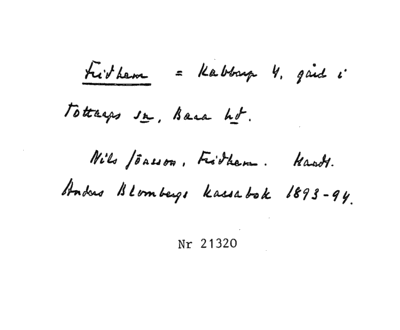 Fridhem = Kabbarp 4, gård i
Tottarps sn, Bara hd.
Nils Jönsson, Fridhem. Handl.
Anders Blombergs kassabok 1893-94.
Nr 21320